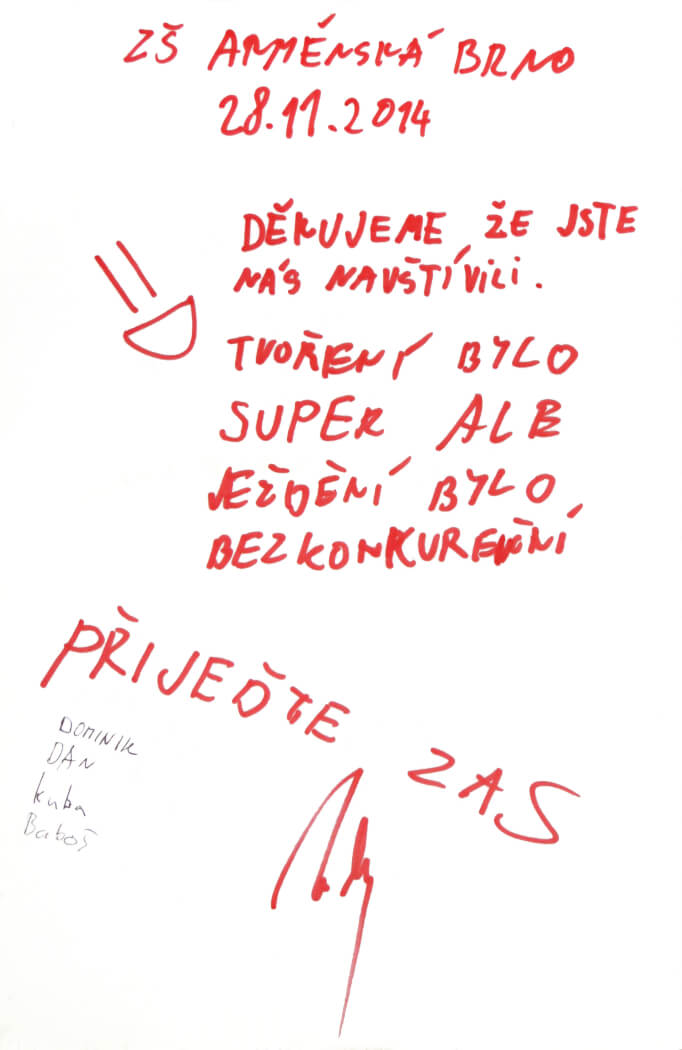 ZŠ ARMÉNSKÁ BRNO
28.11.2014
DĚKUJEME, ŽE JSTE
NÁS NAVŠTÍVILI.
TVOŘENÍ BYLO
SUPER ALE
JEŽDĚNÍ BYLO
BEZKONKURENČNÍ
PŘIJEĎTE ZAS
DOMINIK
DAN
kuba
Baboš